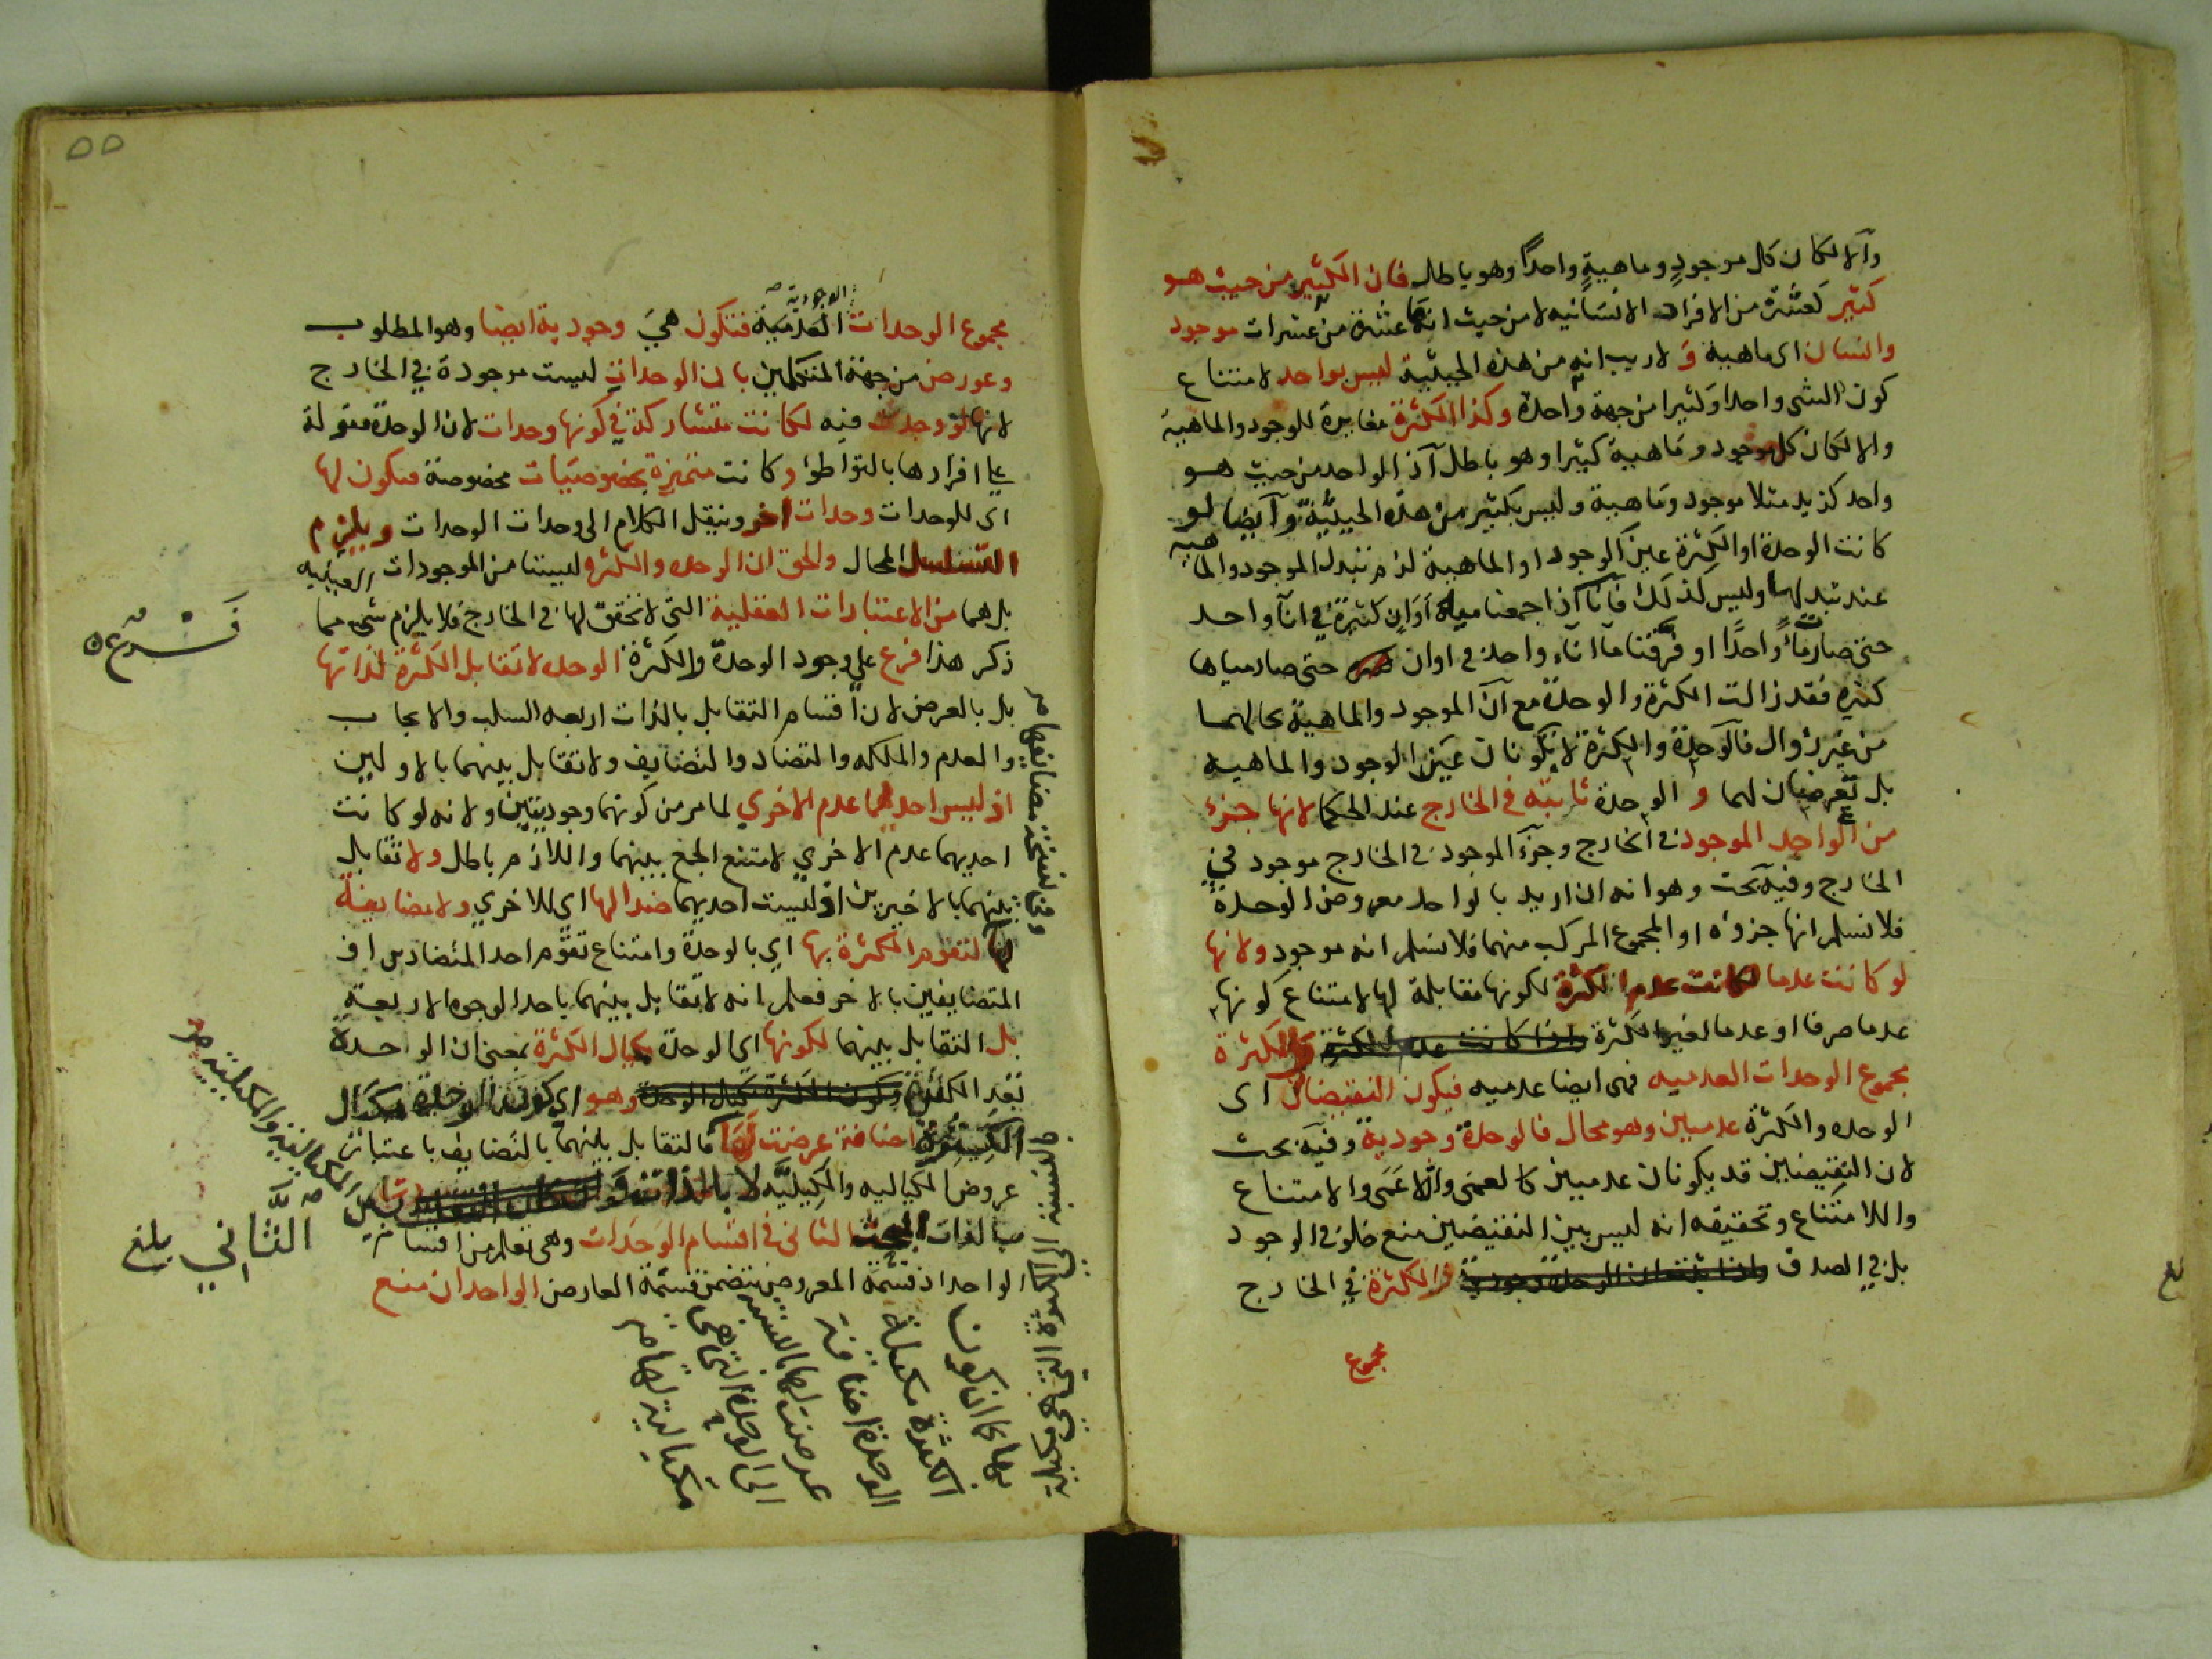 والا لكان كل موجود وماهية واحدًا وهو باطل فان الكثير من حيث هو
كثير كعشرة من الافراد الانسانيه لا من حيث انها عشرة من عشرات موجود
وانسان اى ماهية ولا ريب انه من هذه الحيثية ليس بواحد لامتناع
كون الشى واحدا وكثيرا من جهة واحدة وكذا الكثرة مغايرة للوجود والماهية
والا لكان كل موجود وماهية كثيرا وهو باطل اذ الواحد من حيث هو
واحد كزيد مثلا موجود وماهية وليس بكثير من هذه الحيثية وايضا لو
كانت الوحدة او الكثرة عين الوجود او الماهية لزم تبدل الموجود والماهية
عند تبدلها وليس كذلك فانا اذا جمعنا مياه اوان كثيرة في اناء واحد
حتى صارت ماءً واحدًا او فرقنا ماء اناء واحد في اوان حتى صار مياها
كثيره فقد زالت الكثرة والوحدة مع ان الموجود والماهية بحالهما
من غير زوال فالوحدة والكثرة لا يكونان عين الوجود والماهية
بل تعرضان لهما والوحدة ثابته في الخارج عند الحكما لانها جزء
من الواحد الموجود في الخارج وجزء الموجود في الخارج موجود في
الخارج وفيه بحث وهو انه ان اريد بالواحد معروض الوحدة
فلا نسلم انها جزؤه او المجموع المركب منهما فلا نسلم انه موجود ولانها
لو كانت عدما لكانت عدم الكثرة لكونها مقابلة لها لامتناع كونها
عدما صرفا او عدما لغير الكثرة واذا كانت عدم الكثرة والكثرة
مجموع الوحدات العدميه فهى ايضا عدميه فيكون النقيضان اى
الوحده والكثرة عدميين وهو محال فالوحدة وجودية وفيه بحث
لان النقيضين قد يكونان عدميين كالعمى واللاعمى والامتناع
واللامتناع وتحقيقه انه ليس بين النقيضين منع خلو في الوجود
بل في الصدق واذا ثبت ان الوحدة وجودية والكثرة في الخارج
مجموع
٥٥
الوجودية صح
مجموع الوحدات العدمية فتكون هي وجودية ايضا وهو المطلوب
وعورض من جهة المتكلمين بان الوحدات ليست موجودة في الخارج
لانها لو وجدت فيه لكانت متشاركة في كونها وحدات لان الوحدة مقولة
على افرادها بالتواطؤ وكانت متميزة بخصوصيات مخصوصة فيكون لها
اى للوحدات وحدات اخر وينقل الكلام الى وحدات الوحدات ويلزم
التسلسل المحال والحق ان الوحده والكثره ليستا من الموجودات العينيه
بل هما من الاعتبارات العقلية التى لا تحقق لها في الخارج فلا يلزم شى مما
ذكر هذا فرع على وجود الوحدة والكثرة الوحده لا تقابل الكثرة لذاتها
بل بالعرض لان اقسام التقابل بالذات اربعه السلب والايجاب
والعدم والملكه والتضاد والتضايف ولا تقابل بينهما بالاولين
اذ ليس احديهما عدم الاخري لما مر من كونهما وجوديتين ولانه لو كانت
احديهما عدم الاخري لامتنع الجمع بينهما واللازم باطل ولا تقابل
بينهما بالاخيرين اذ ليست احديهما ضدا لها اى للاخري ولا مضايفة
لها لتقوم الكثرة بها اي بالوحدة وامتناع تقوم احد المتضادين او
المتضايفين بالاخر فعلم انه لا تقابل بينهما باحد الوجوه الاربعة
بل التقابل بينهما لكونها اى الوحدة مكيال الكثرة بمعنى ان الواحدة
تعد الكثرة وكون الكثرة مكيال الوحدة وهو اى كون الوحدة مكيال
الكثرة اضافة عرضت لها فالتقابل بينهما بالتضايف باعتبار
عروض المكياليه والمكيليّه لا بالذات
مبالغات البحث الثانى في اقسام الوحدات وهى تعلم من اقسام
الواحد اذ قسمة المعروض يتضمن قسمة العارض الواحد ان منع
فَرْع
الثَّانِي
بلغ
وفى نسخة مضايفها صح
المكيالية والمكيلية صح
بها كما ان كون
الكثرة مكيلة
الوحدة اضافة
عرضت لها بالنسبة
الى الوحدة
مكيالية لها صح